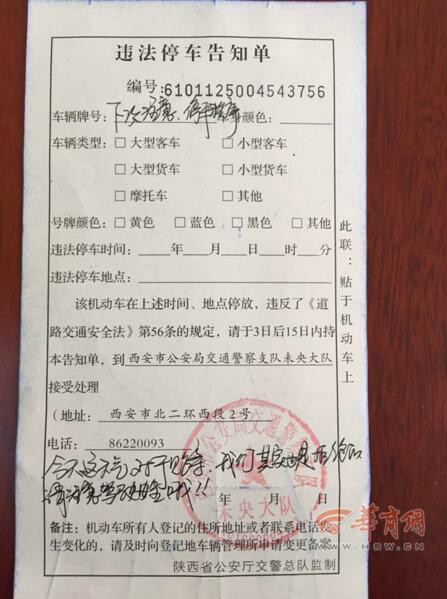 违法停车告知单
编号:6101125004543756
车辆牌号:下次注意、停车 颜色:
车辆类型:□大型客车 □小型客车
□大型货车 □小型货车
□摩托车 □其他
号牌颜色:□黄色 □蓝色 □黑色 □其他
违法停车时间:___年___月___日___时___分
违法停车地点:
该机动车在上述时间、地点停放,违反了《道
路交通安全法》第56条的规定,请于3日后15日内持
本告知单,到西安市公安局交通警察支队未央大队
接受处理
(地址:西安市北二环西段2号
电话:86220093 )
今天这天气对
年 月 日
备注:机动车所有人登记的住所地址或者联系电话发
生变化的,请及时向登记地车辆管理所申请变更备案
陕西省公安厅交警总队监制
此联:贴于机动车上
公安局交通警
未央大队
华商网
WWW.HSW.CN